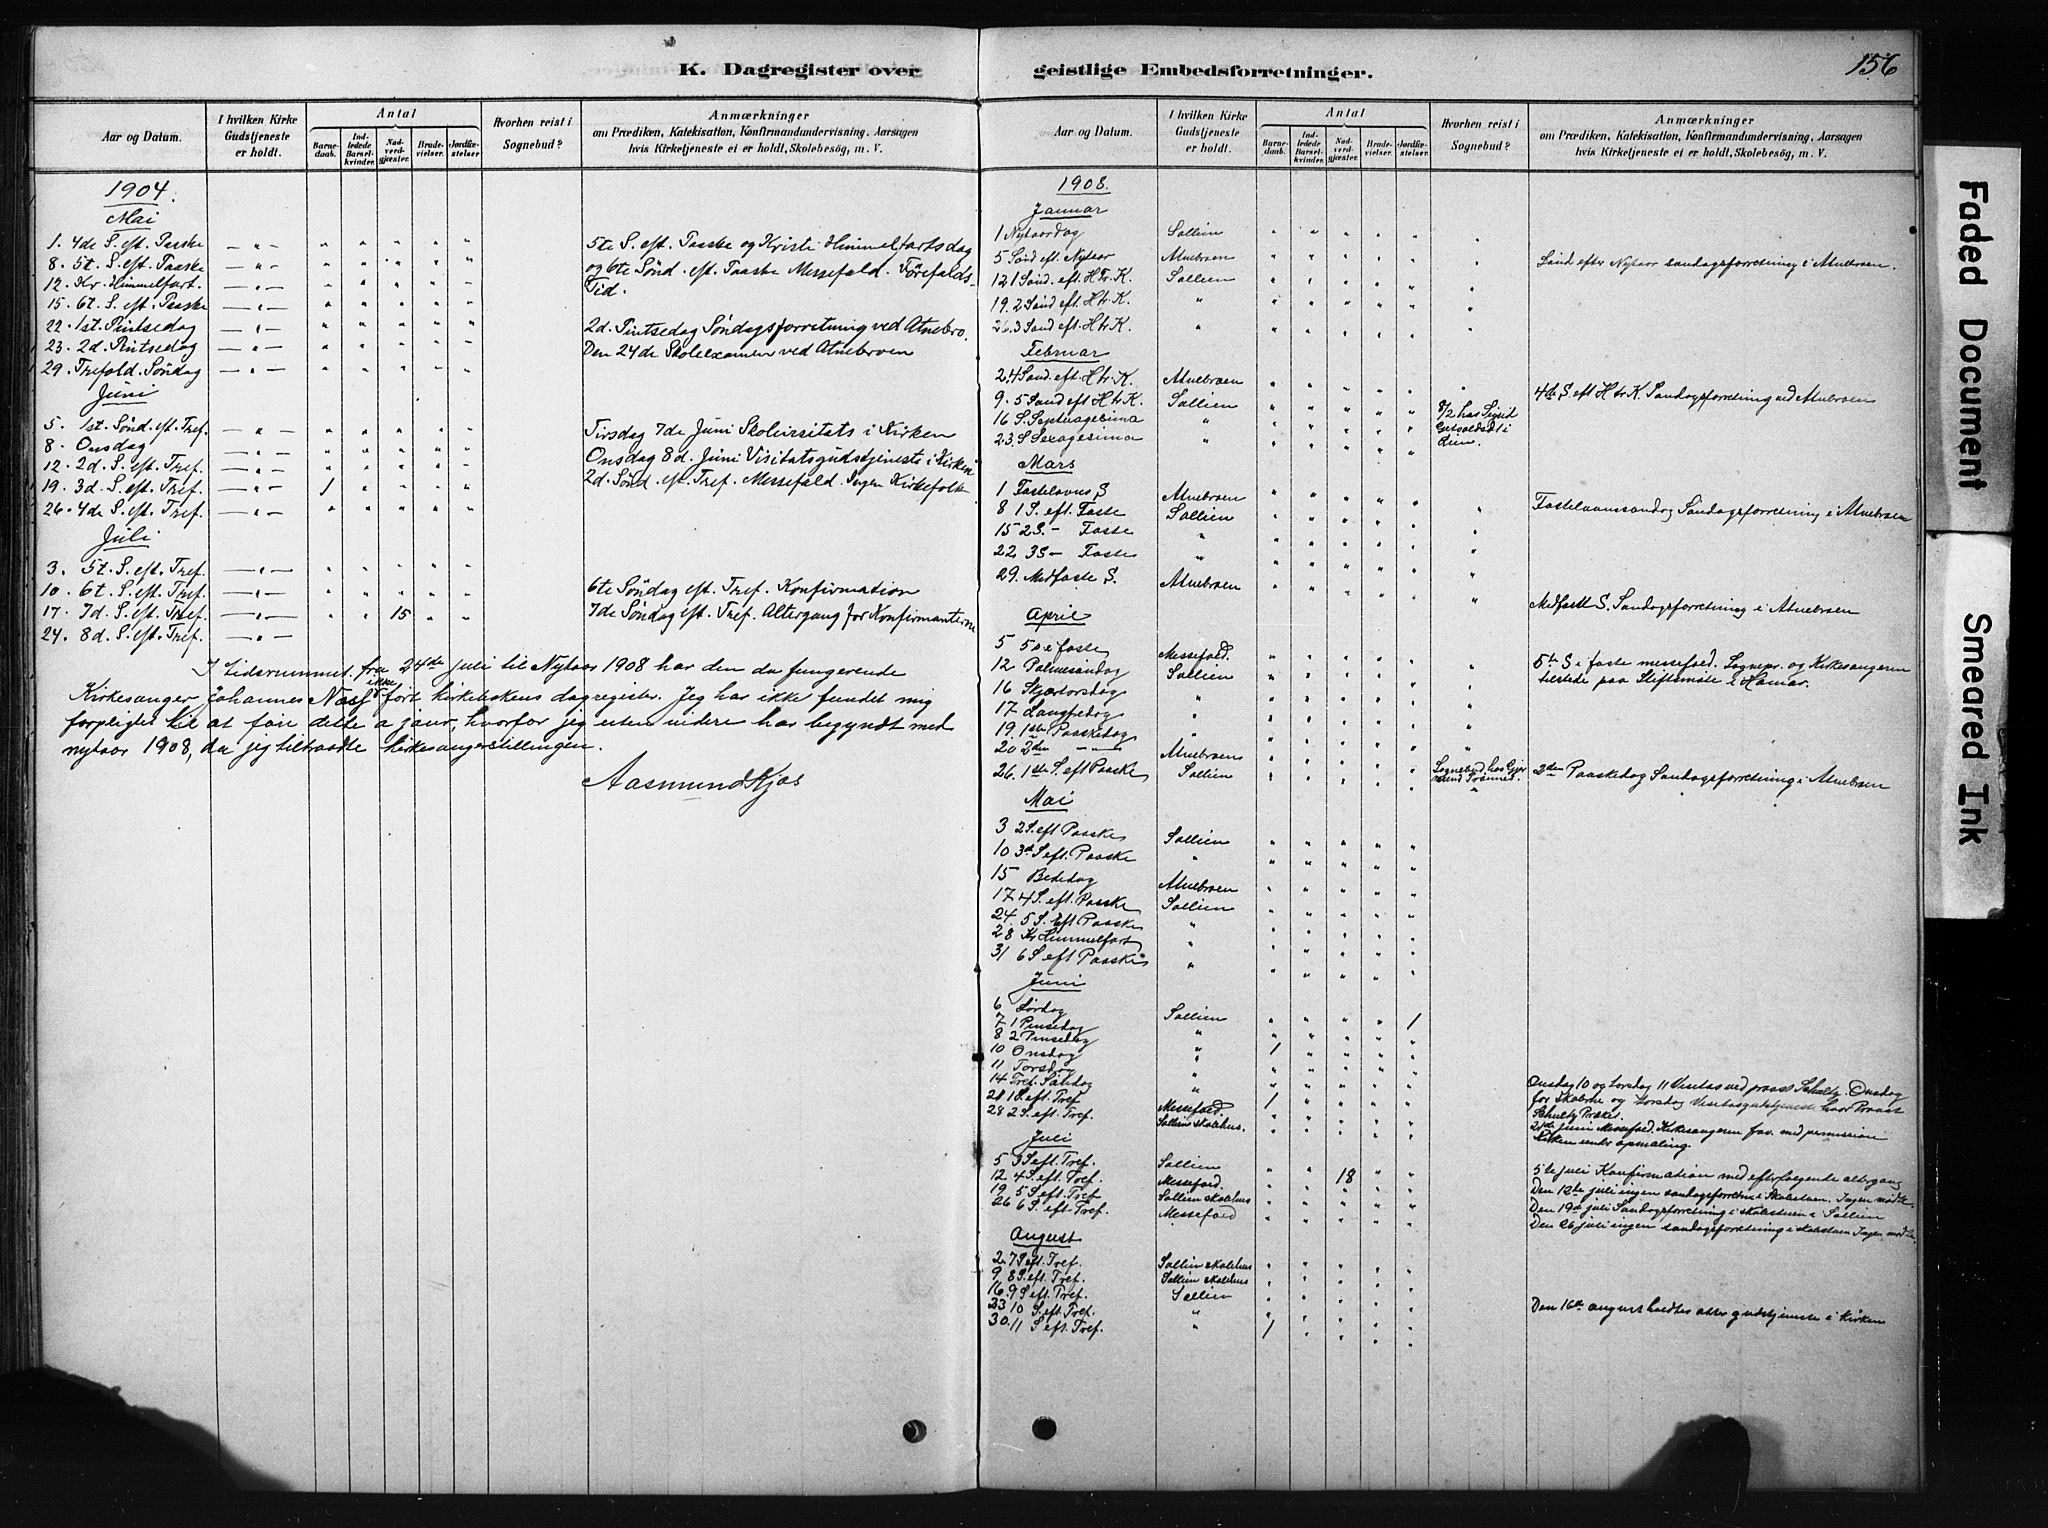 K. Dagregister over geistlige Embedsforretninger.
156
Aar og Datum.
I hvilken Kirke Gudstjeneste er holdt.
Antal
Barnedaab.
Indledede Barselkvinder.
Nadverdgjæster.
Brudevielser.
Jordfæstelser
Hvorhen reist i Sognebud?
Anmærkninger
om Prædiken, Katekisation, Konfirmandundervisning, Aarsagen
hvis Kirketjeneste ei er holdt, Skolebesög, m. V.
1904.
Mai
1. 4de S. eft. Paaske — " — " " " " "
8. 5t. S. eft. Paaske — " — " " " " "
12. Kr. Himmelfart. — " — " " " " "
15. 6t. S. eft. Paaske — " — " " " " "
22. 1st. Pintsedag — " — " " " " "
23. 2d. Pintsedag — " — " " " " "
29. Trefold. Søndag — " — " " " " "
5te S. eft. Paaske og Kristi Himmelfartsdag
og 6te Sønd. eft. Paaske Messefald. Førefalds-
Tid.
2d. Pintsedag Søndagsforretning ved Atnebro.
Den 24de Skoleexamen ved Atnebroen
Juni
5. 1st. Sønd. eft. Tref. — " — " " " " "
8. Onsdag — " — " " " " "
12. 2d. S. eft. Tref. — " — " " " " "
19. 3d. S. eft. Tref. — " — 1 " " " "
26. 4de S. eft. Tref. — " — " " " " "
Tirsdag 7de Juni Skolevisitats i Kirken
Onsdag 8d. Juni Visitatsgudstjeneste i Kirken
2d. Sønd. eft. Tref. Messefald. Ingen Kirkefolk
Juli
3. 5t. S. eft. Tref. — " — " " " " "
10. 6t. S. eft. Tref. — " — " " " " "
17. 7d. S. eft. Tref. — " — " " 15 " "
24. 8d. S. eft. Tref. — " —
6te Søndag eft. Tref. Konfirmation
7de Søndag eft. Tref. Altergang for Konfirmanterne
I tidsrummet fra 24de juli til Nytaar 1908 har den da fungerende
Kirkesanger Johannes Næsf ikke ført kirkebokens dagregister. Jeg har ikke fundet mig
forpligtet til at føre dette a jour, hvorfor jeg uten videre har begyndt med
nytaar 1908, da jeg tiltraadte kirkesangerstillingen.
Aasmund Kjos
Aar og Datum.
I hvilken Kirke Gudstjeneste er holdt.
Antal
Barnedaab.
Indledede Barselkvinder.
Nadverdgjæster.
Brudevielser.
Jordfæstelser.
Hvorhen reist i Sognebud?
Anmærkninger
om Prædiken, Katekisation, Konfirmandundervisning, Aarsagen
hvis Kirketjeneste ei er holdt, Skolebesög, m. V.
1908.
Januar
1 Nytaarsdag Sollien " " " " " "
5 Sønd eft. Nytaar Atnebroen " " " " " " Sønd efter Nytaar søndagsforretning i Atnebroen.
12 1 Sønd. eft. H tr. K. Sollien " " " " " "
19. 2 Sønd eft. H tr. K. " " " " " " "
26. 3 Sønd eft. H tr. K. " " " " " " "
Februar
2. 4 Sønd. eft. H tr. K. Atnebroen " " " " " " 4de S. eft H tr K. Søndagsforretning ved Atnebroen
9. 5 Sønd eft H tr K. Sollien " " " " " 9/2 hos Sigrid
16 S. Septuagesima " " " " " " i
23. S Sexagesima " " " " " " Lien.
Mars
1 Fastelavns S Atnebroen " " " " " " Fastelavnssøndag Søndagsforretning i Atnebroen
8 1 S. eft. Faste Sollien " " " " " "
15 2 S. — Faste " " " " " " "
22 3 S — Faste " " " " " " "
29. Midfaste S. Atnebroen " " " " " " Midfaste S. Søndagsforretning i Atnebroen
April
5 5 S i faste Messefald. " " " " " " 5te S i faste messefald. Sognepr. og Kirkesangeren
12 Palmesøndag Sollien " " " " " " tilstede paa Stiftsmøte i Hamar.
16 Skjærtorsdag " " " " " " "
17 Langfredag " " " " " " "
19. 1ste Paaskedag " " " " " " "
20 2den — " — Atnebroen " " " " " Sognebud hos Gjer- 2den Paaskedag Søndagsforretning i Atnebroen
26. 1ste S. eft Paaske Sollien " " " " "
Mai
3 2 S. eft Paaske Sollien " " " " "
10 3d S eft. Paaske " " " " " "
15 Bededag Atnebroen " " " " "
17 4 S. eft. Paaske Sollien " " " " "
24. 5 S. Eft Paaske
28 Kr Himmelfart " " " " " "
31 6 S eft Paaske " " " " " "
Juni
6 Lørdag Sollien " " " " 1
7 1 Pinsedag " " " " " "
8 2 Pinsedag
10 Onsdag " 1 " " " "
11 Torsdag " " " " " "
14 Tref. Søndag " " " " " "
21 1 S. eft. Tref Messefald. 1 " " " "
28 2 S. eft. Tref. Sollien skolehus. " " " " "
Onsdag 10 og torsdag 11 Visitas ved provst Schultz. Onsdag
for skolerne og torsdag Visitasgudstjeneste hvor Provst
Schultz Præket.
21de juni Messefald. Kirkesangeren frav. med permission
Kirken under opmaling.
Juli
5 3 S eft. Tref. Sollien " " 18 " " 5te juli Konfirmation med efterfølgende altergang
12 4 S. eft. Tref. Messefald. " " " " " Den 12te juli ingen søndagsforretn. i Skolestuen. Ingen mødte.
19 5 S. eft. Tref Sollien skolehus " " " " " Den 19de juli Søndagsforretning i skolestuen i Sollien
26 6 S. eft. Tref. Messefald " " " " " Den 26 juli ingen søndagsforretning i skolestuen Ingen mødte.
August
2. 7 S eft. Tref. Sollien skolehus " " " " "
9. 8 S. eft. Tref. Sollien skolehus " " " " "
16. 9 S eft. Tref. Sollien " " " " " Den 16de august holdtes atter gudstjeneste i kirken
23 10 S. eft. Tref. " " " " " "
30. 11 S eft. Tref. " 1 " " " "
Faded Document
Smeared Ink